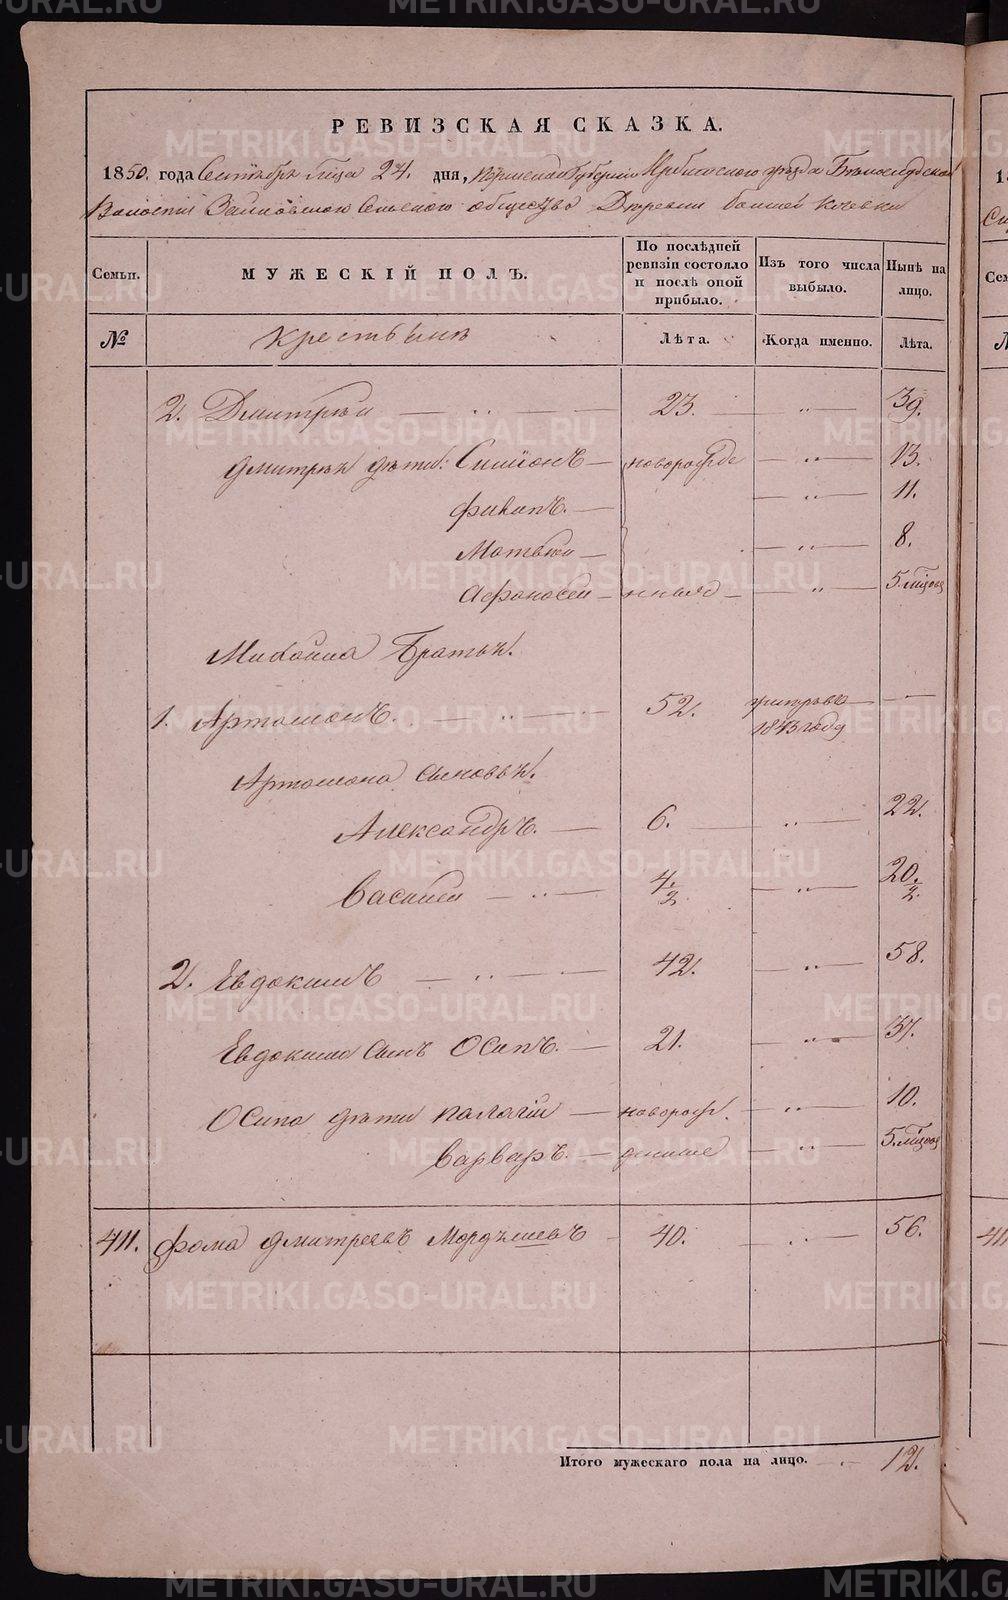 РЕВИЗСКАЯ СКАЗКА.
1850. года Сентября м-ца 24. дня, Пермской Губернии Ирбитского уезда Белослудской
Волости Зайковского Сельского общества Деревни большей Кочевки
Семьи. МУЖЕСКІЙ ПОЛЪ. По послѣдней ревизіи состояло и послѣ оной прибыло. Изъ того числа выбыло. Нынѣ на лицо.
№ Крестьяне Лѣта. Когда именно. Лѣта.
2. Дмитрѣй — „ — 23. „ — 39.
Дмитрея дѣти: Симионъ — новорожде — „ — 13.
Филипъ. — — „ — 11.
Матвѣй — — „ — 8.
Афонасей — нныя — „ — 5. мѣсец
Михайла Братья.
1. Артомонъ. — „ — 52. умеръ въ 1843 году —
Артомона сыновья.
Александръ. — 6. — „ — 22.
Василей — „ — 4 1/2 — „ — 20 1/2
2. Евдокимъ — „ — 42. — „ — 58.
Евдокима сынъ Осипъ. — 21. — „ — 37.
Осипа дѣти — новорож. — „ — 10.
Варваръ. — денные — „ — 5. мѣсец
411. Фома Дмитреевъ 40. — „ — 56.
Итого мужескаго пола на лицо. — 12.
METRIKI.GASO-URAL.RU